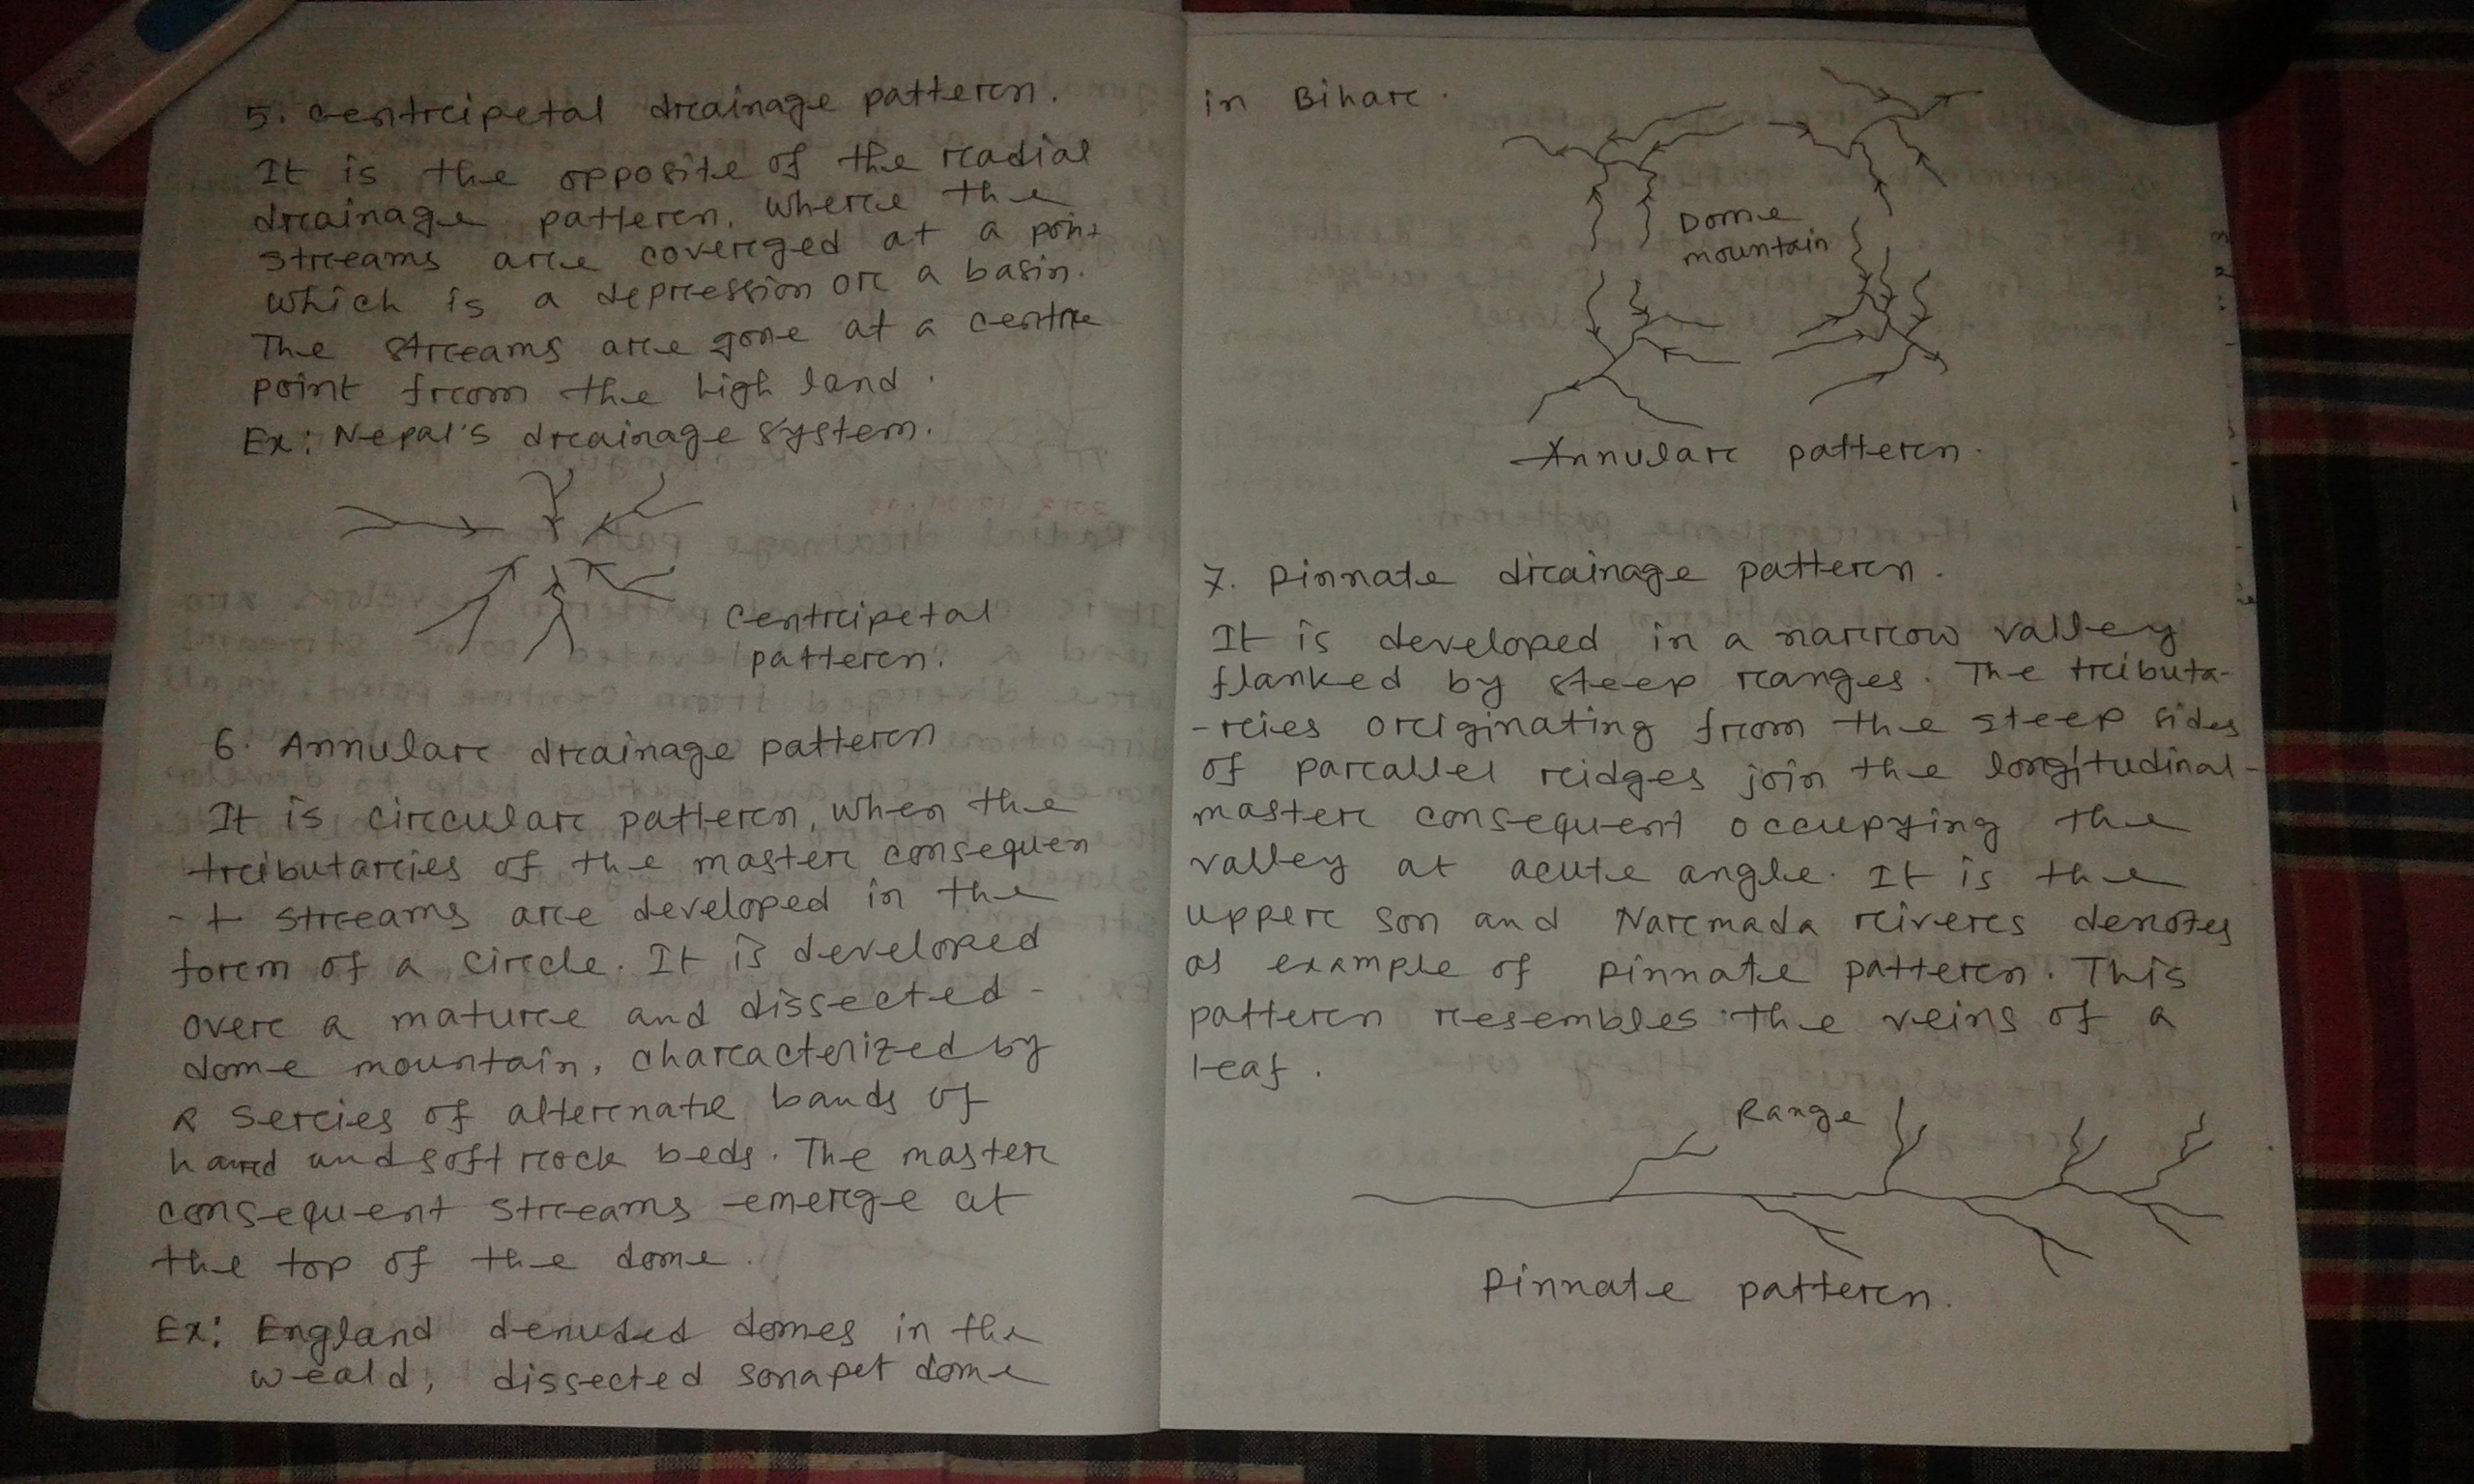 5. Centripetal drainage pattern.
It is the opposite of the radial
drainage pattern. Where the
streams are coverged at a point
which is a depression or a basin.
The streams are gone at a centre
point from the high land.
Ex: Nepal's drainage system.
Centripetal
pattern.
6. Annular drainage pattern
It is circular pattern, when the
tributaries of the master consequen
-t streams are developed in the
form of a circle. It is developed
over a mature and dissected -
dome mountain, characterized by
a series of alternate bands of
hard and soft rock beds. The master
consequent streams emerge at
the top of the dome.
Ex: England denuded domes in the
weald, dissected sonapet dome
in Bihar.
Dome
mountain
Annular pattern.
7. Pinnate drainage pattern.
It is developed in a narrow valley
flanked by steep ranges. The tributa-
-ries originating from the steep sides
of parallel ridges join the longitudinal-
master consequent occupying the
valley at acute angle. It is the
upper son and Narmada rivers denotes
as example of pinnate pattern. This
pattern resembles the veins of a
leaf.
Range
Pinnate pattern.